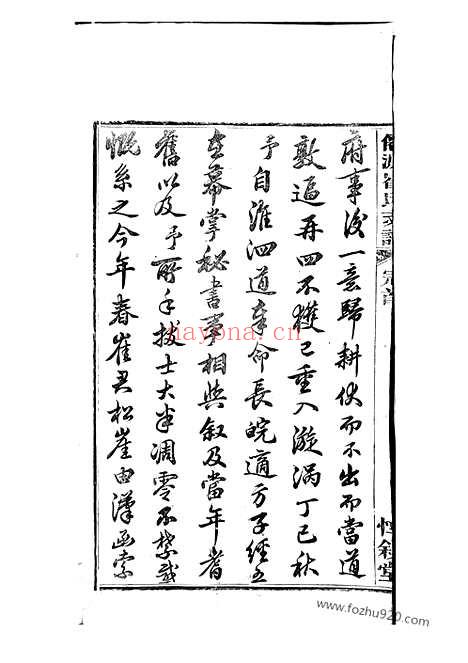 府事後一意歸耕伏而不出而當道
敦逼再四不獲已重入漩渦丁巳秋
予自淮泗道奉命長皖適方子經五
在幕掌秘書事相與叙及當年耆
舊以及予所手拔士大半凋零不禁感
慨系之今年春崔君松崖由漢函索
崔氏支譜
惇敘堂
nayona.cn
www.fozhu920.com